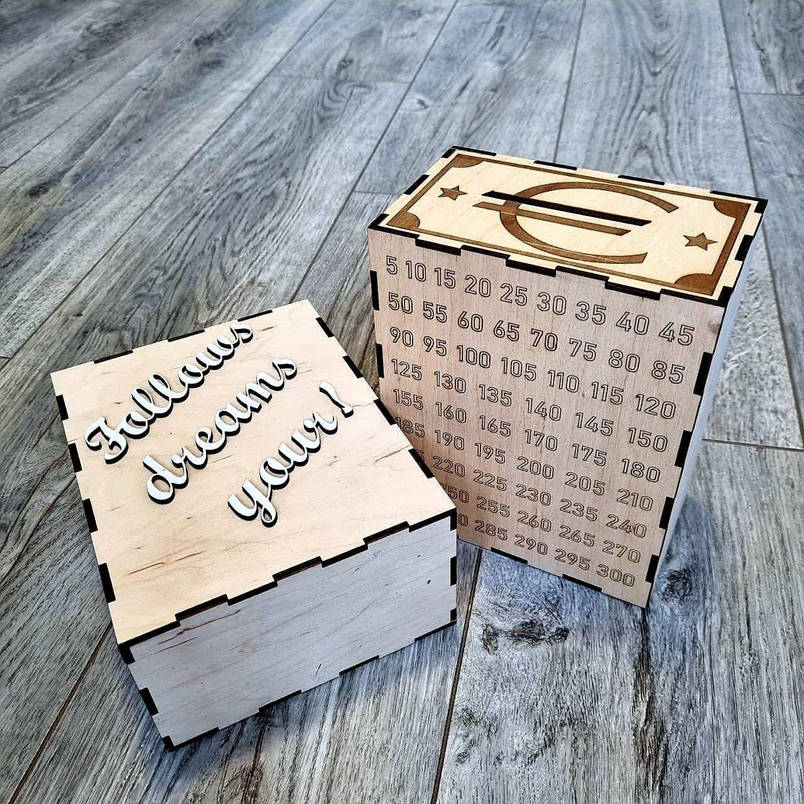 Follows
dreams
your!
€
5 10 15 20 25 30 35 40 45
50 55 60 65 70 75 80 85
90 95 100 105 110 115 120
125 130 135 140 145 150
155 160 165 170 175 180
185 190 195 200 205 210
220 225 230 235 240
255 260 265 270
285 290 295 300